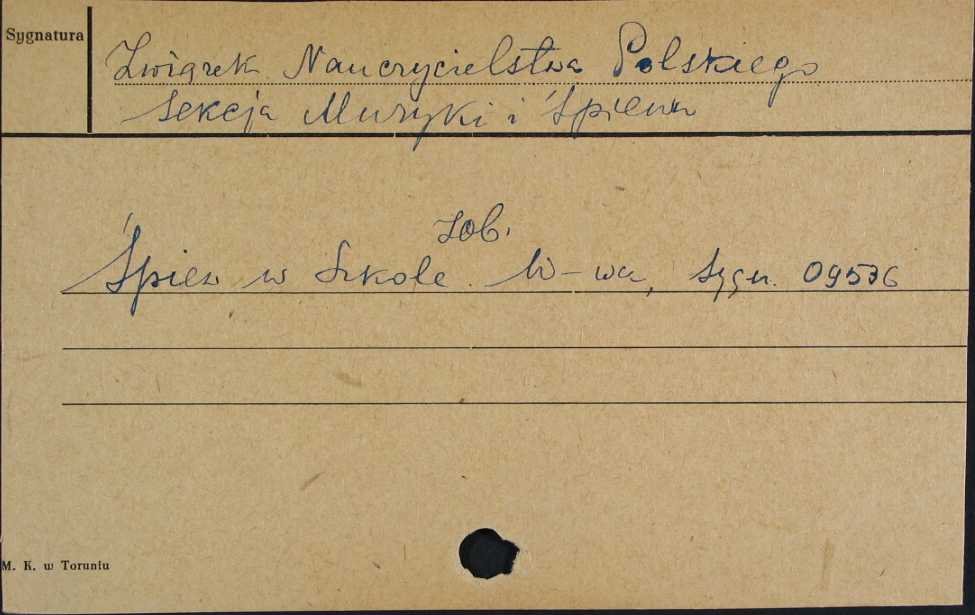 Sygnatura
Związek Nauczycielstwa Polskiego
Sekcja Muzyki i Śpiewu
Zob.
Śpiew w Szkole. W-wa, Sygn. 09536
M. K. w Toruniu